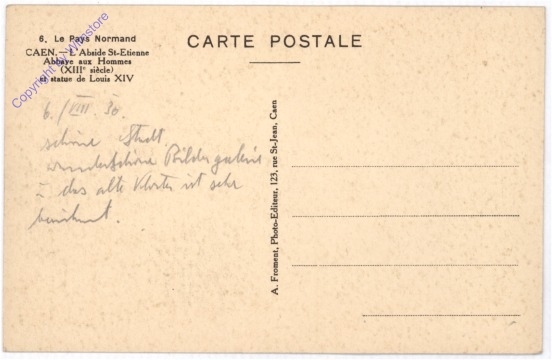 6. Le Pays Normand
CAEN. — L'Abside St-Etienne
Abbaye aux Hommes
(XIIIe siècle)
et statue de Louis XIV
CARTE POSTALE
6./VIII. 30.
schöne Stadt.
wunderschöne Bildergalerie
das alte Kloster ist sehr
berühmt.
A. Froment, Photo-Editeur, 123, rue St-Jean, Caen